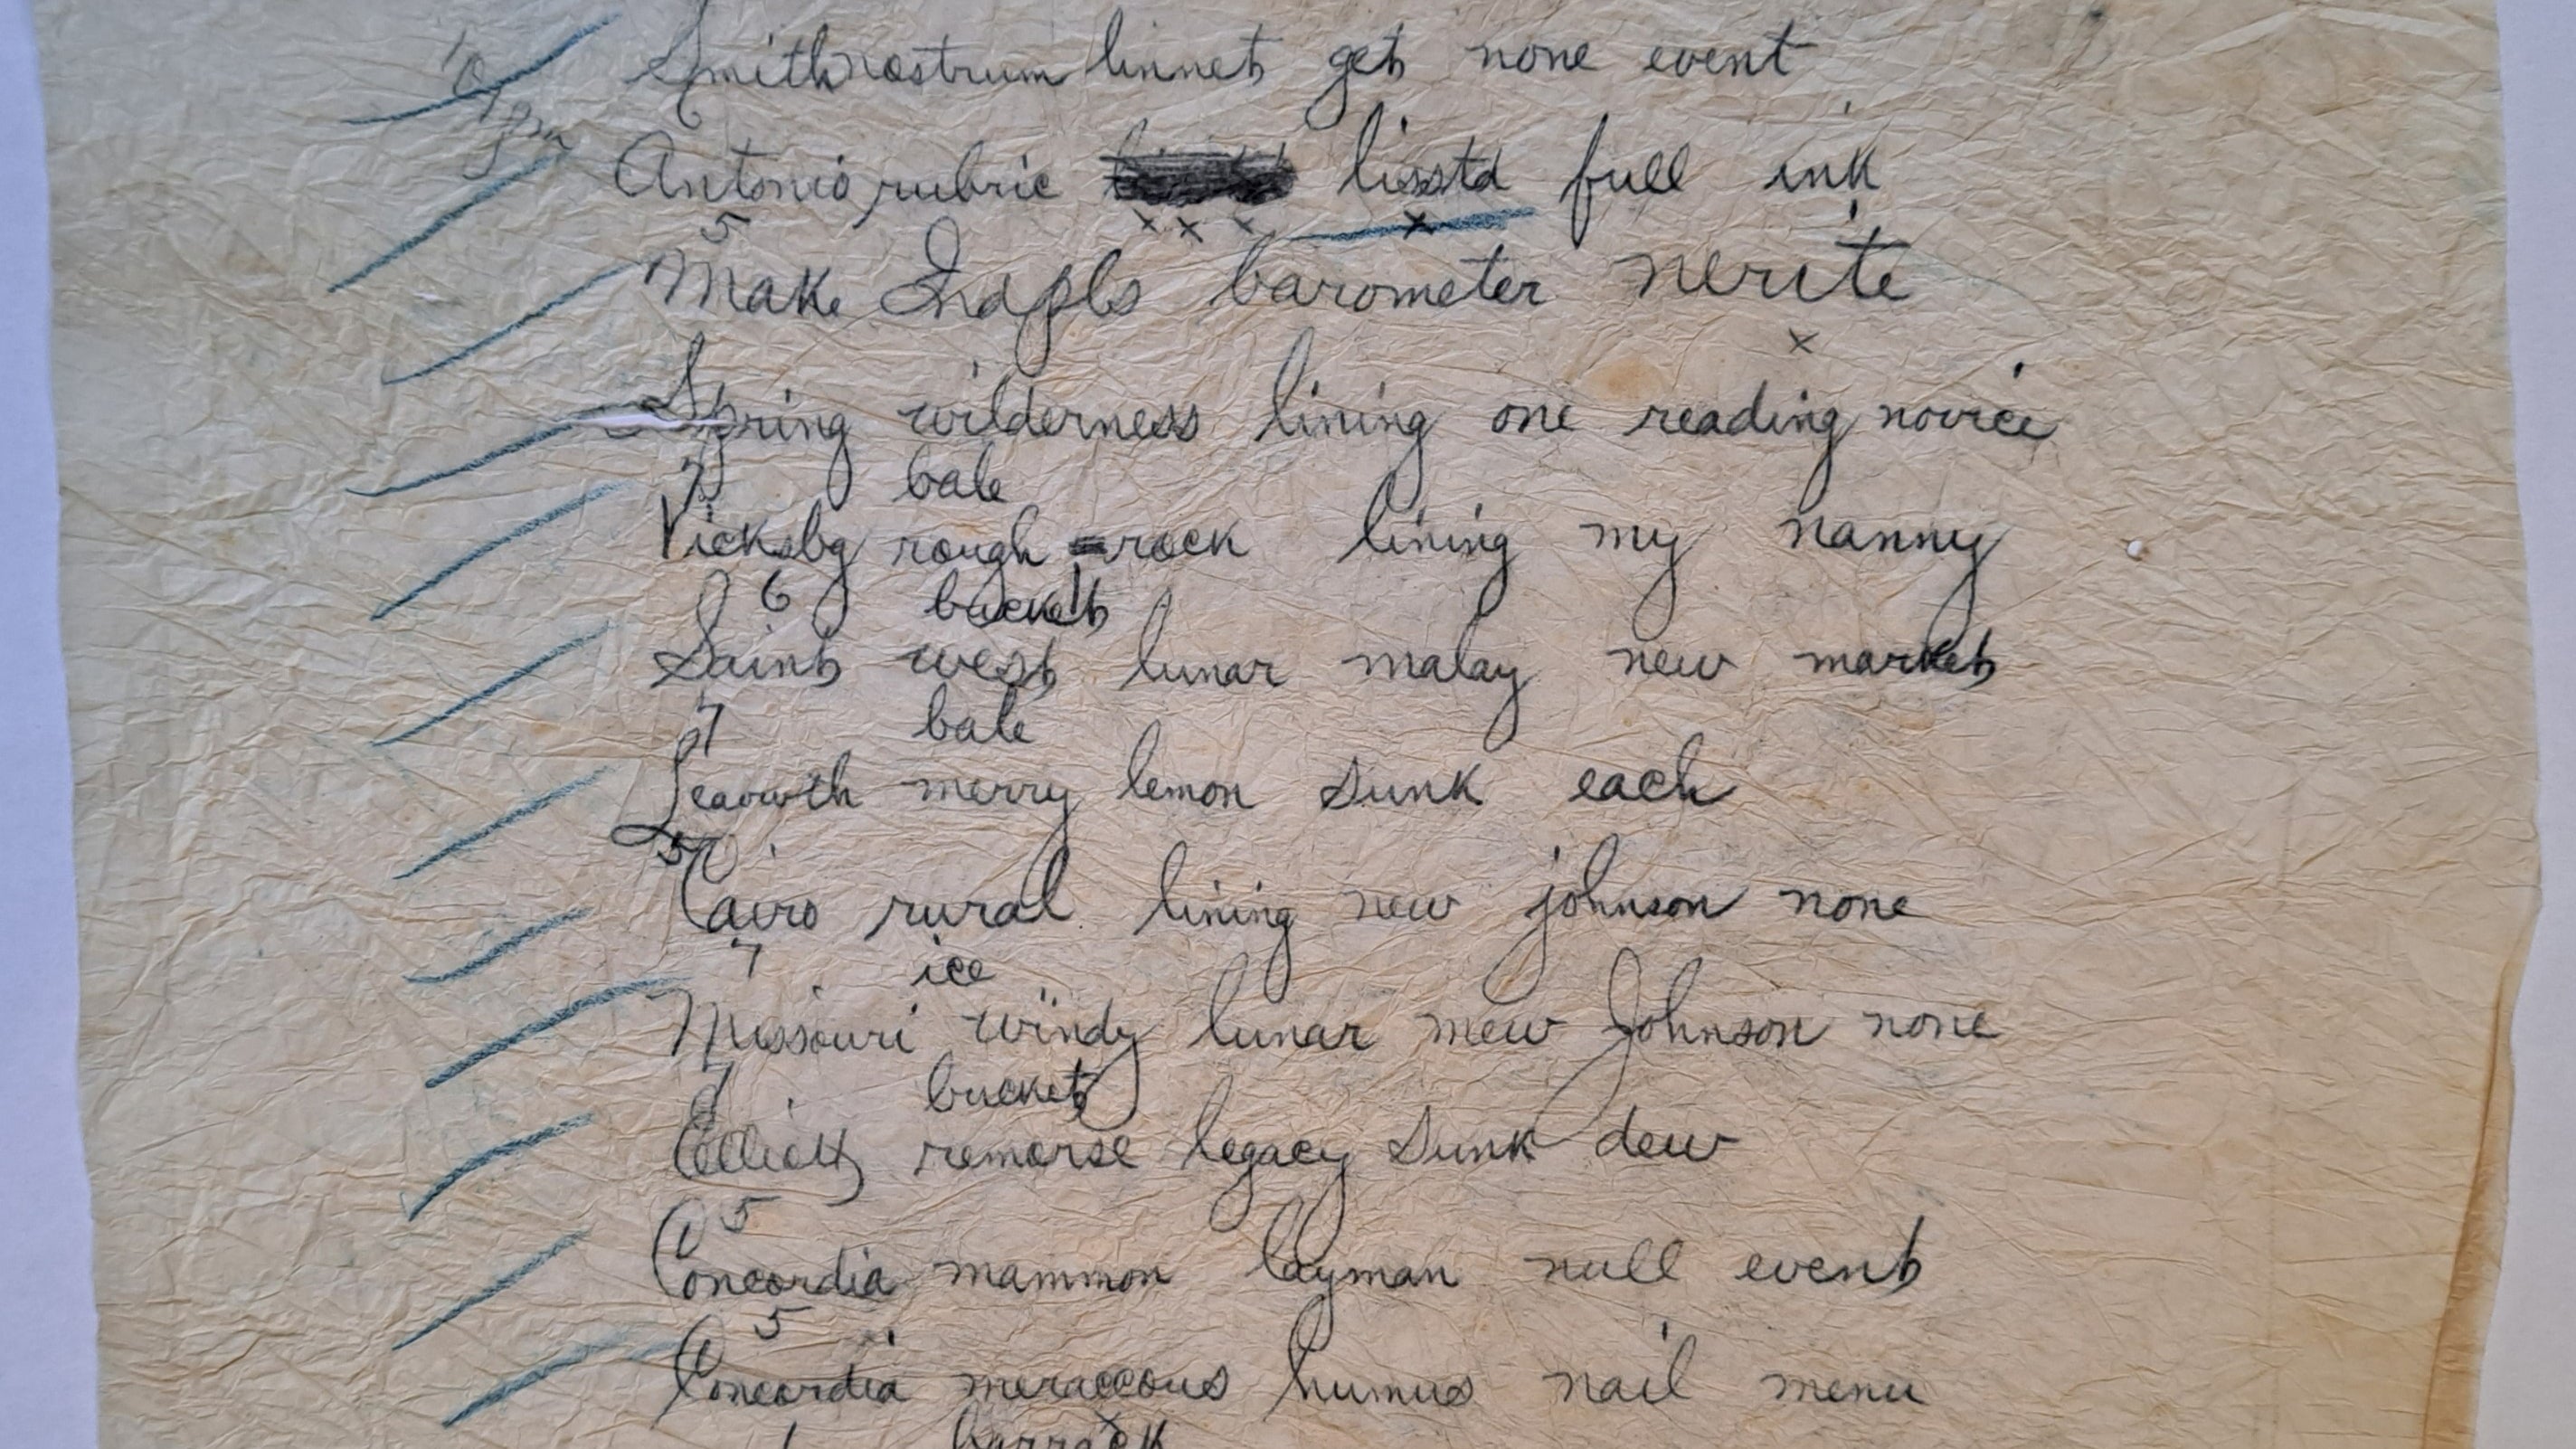 10 pm
Smith nostrum linnet get none event
Antonio rubric lisstd full ink
5
Make Indpls barometer nerite
Spring wilderness lining one reading novice
7 bale
Vicksbg rough rock lining my nanny
6 bucket
Saint west lunar malay new market
7 bale
Leavwth merry lemon sunk each
5
Cairo rural lining new johnson none
7 ice
Missouri windy lunar mew Johnson none
7 bucket
Elliott remorse legacy sunk dew
5
Concordia mammon layman null event
5
Concordia meraccous humus nail menu
barrack